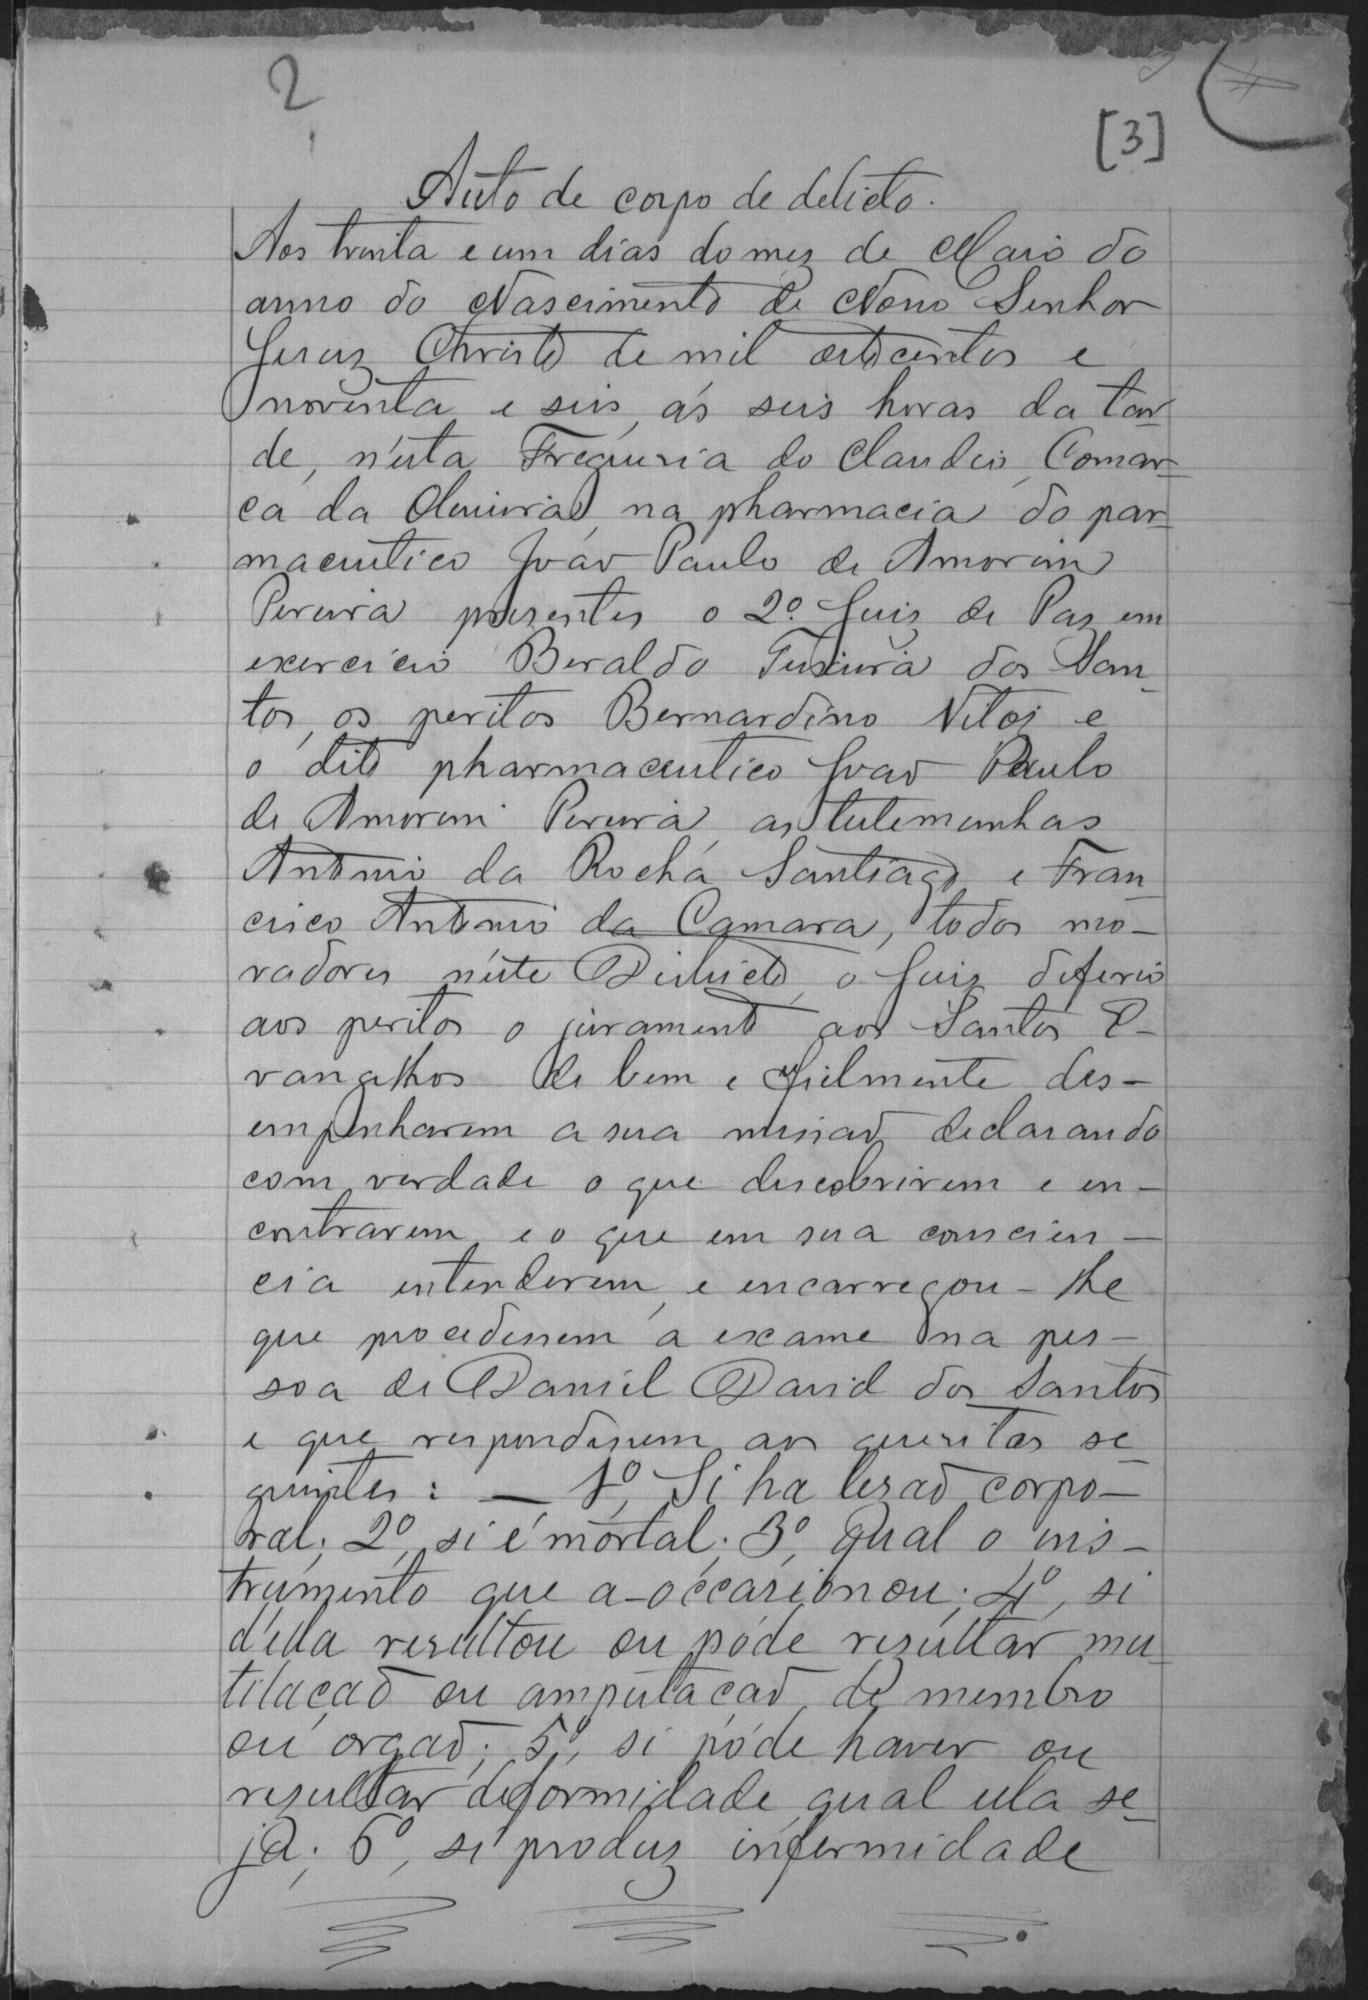 2
[3]
Auto de corpo de delicto.
Aos trinta e um dias do mez de Maio do
anno do Nascimento de Nosso Senhor
Jesuz Christo de mil oitocentos e
noventa e seis, ás seis horas da tar-
de, n'esta Freguesia do Claudio, Comar-
ca da Oliveira, na pharmacia do par-
maceutico João Paulo de Amorim
Pereira presentes o 2º Juiz de Paz em
exercicio Beraldo Teixeira dos San-
tos, os peritos Bernardino Nitos e
o dito pharmaceutico João Paulo
de Amorim Pereira, as testemunhas
Antonio da Rocha Santiago e Fran-
cisco Antonio da Camara, todos mo-
radores n'este Districto, o Juiz deferio
aos peritos o juramento aos Santos E-
vangelhos de bem e fielmente des-
empenharem a sua missão, declarando
com verdade o que descobrirem e en-
contrarem, e o que em sua conscien-
cia entenderem, e encarregou-lhe
que procedessem a exame na pes-
soa de Daniel David dos Santos
e que respondessem aos quesitos se-
guintes: — 1º, Si ha lesão corpo-
ral; 2º, si é mortal; 3º, qual o ins-
trumento que a-occasionou; 4º, si
d'ella resultou ou póde resultar mu-
tilação ou amputação de membro
ou orgão; 5º, si póde haver ou
resultar deformidade, qual ella se-
ja; 6º, si produz infermidade